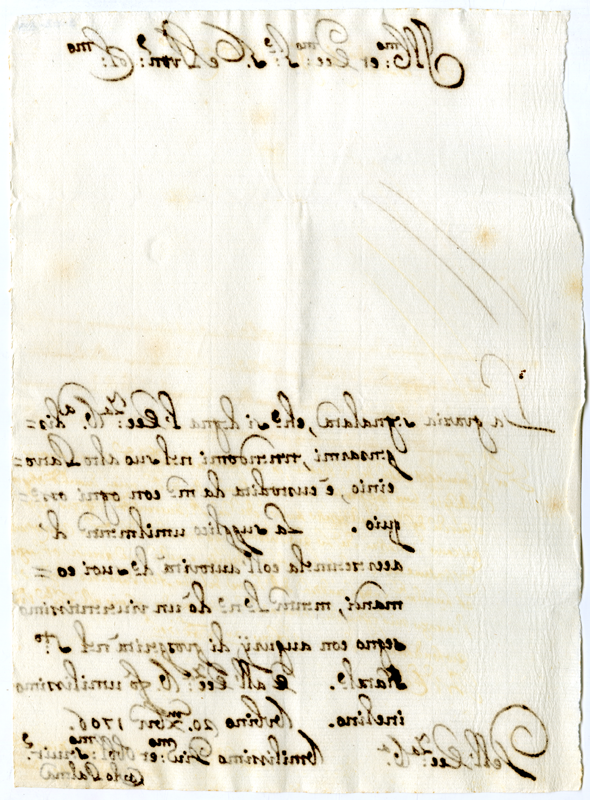 Ill:mo et Ecc:mo Sig:re Sig:re e Pron: Col:mo
La grazia segnalata, che si degna l'Ecc:za V.a dis=
pensarmi, nel suo alto Patro=
cinio, è custodita da me con ogni osse=
quio. La supplico umilmente di
accrescerla coll'autorità de suoi co=
mandi, mentre le ne do un riverentissimo
segno con augurij di prosperità nel S.to
Natale. E all'Ecc:za V. fo umilissimo
inchino. Urbino 20. Xbre 1706.
Dell'Ecc:za V.
Umilissimo Div:mo et obbl:mo Servit:e
Carlo Palma